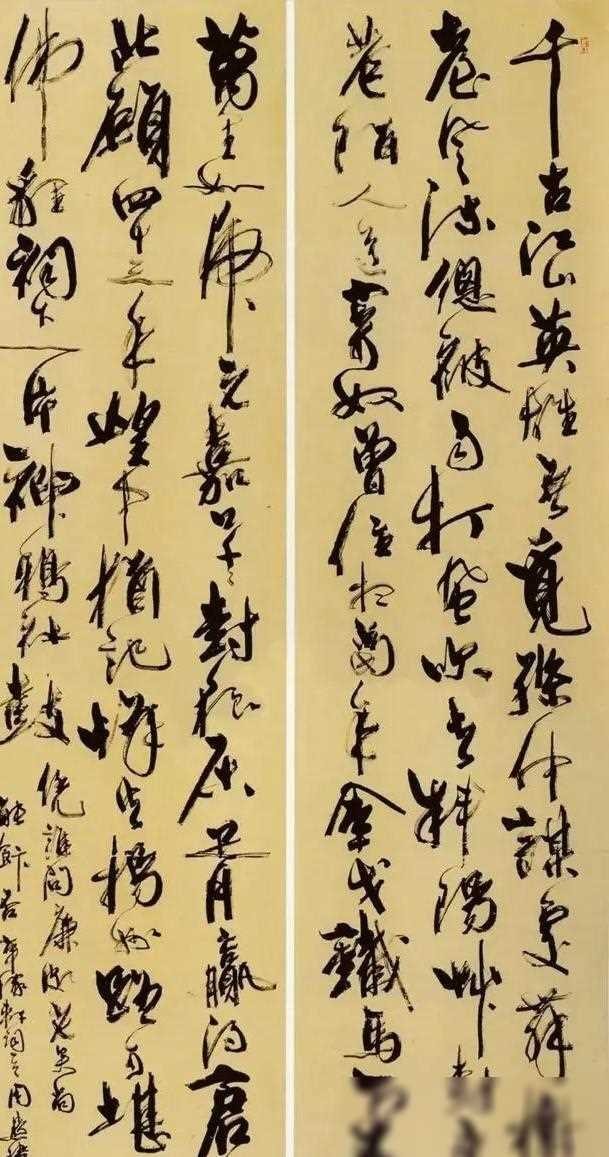 千古江山英雄無覓孫仲謀處舞
臺風流總被雨打風吹去斜陽艸樹
巷陌人道寄奴曾住想當年金戈鐵馬
萬里如虎元嘉草草封狼居胥贏得倉
北顧四十三年望中猶記烽火揚州路可堪
佛貍祠下一片神鴉社鼓
憑誰問廉頗老矣尚
能飯否